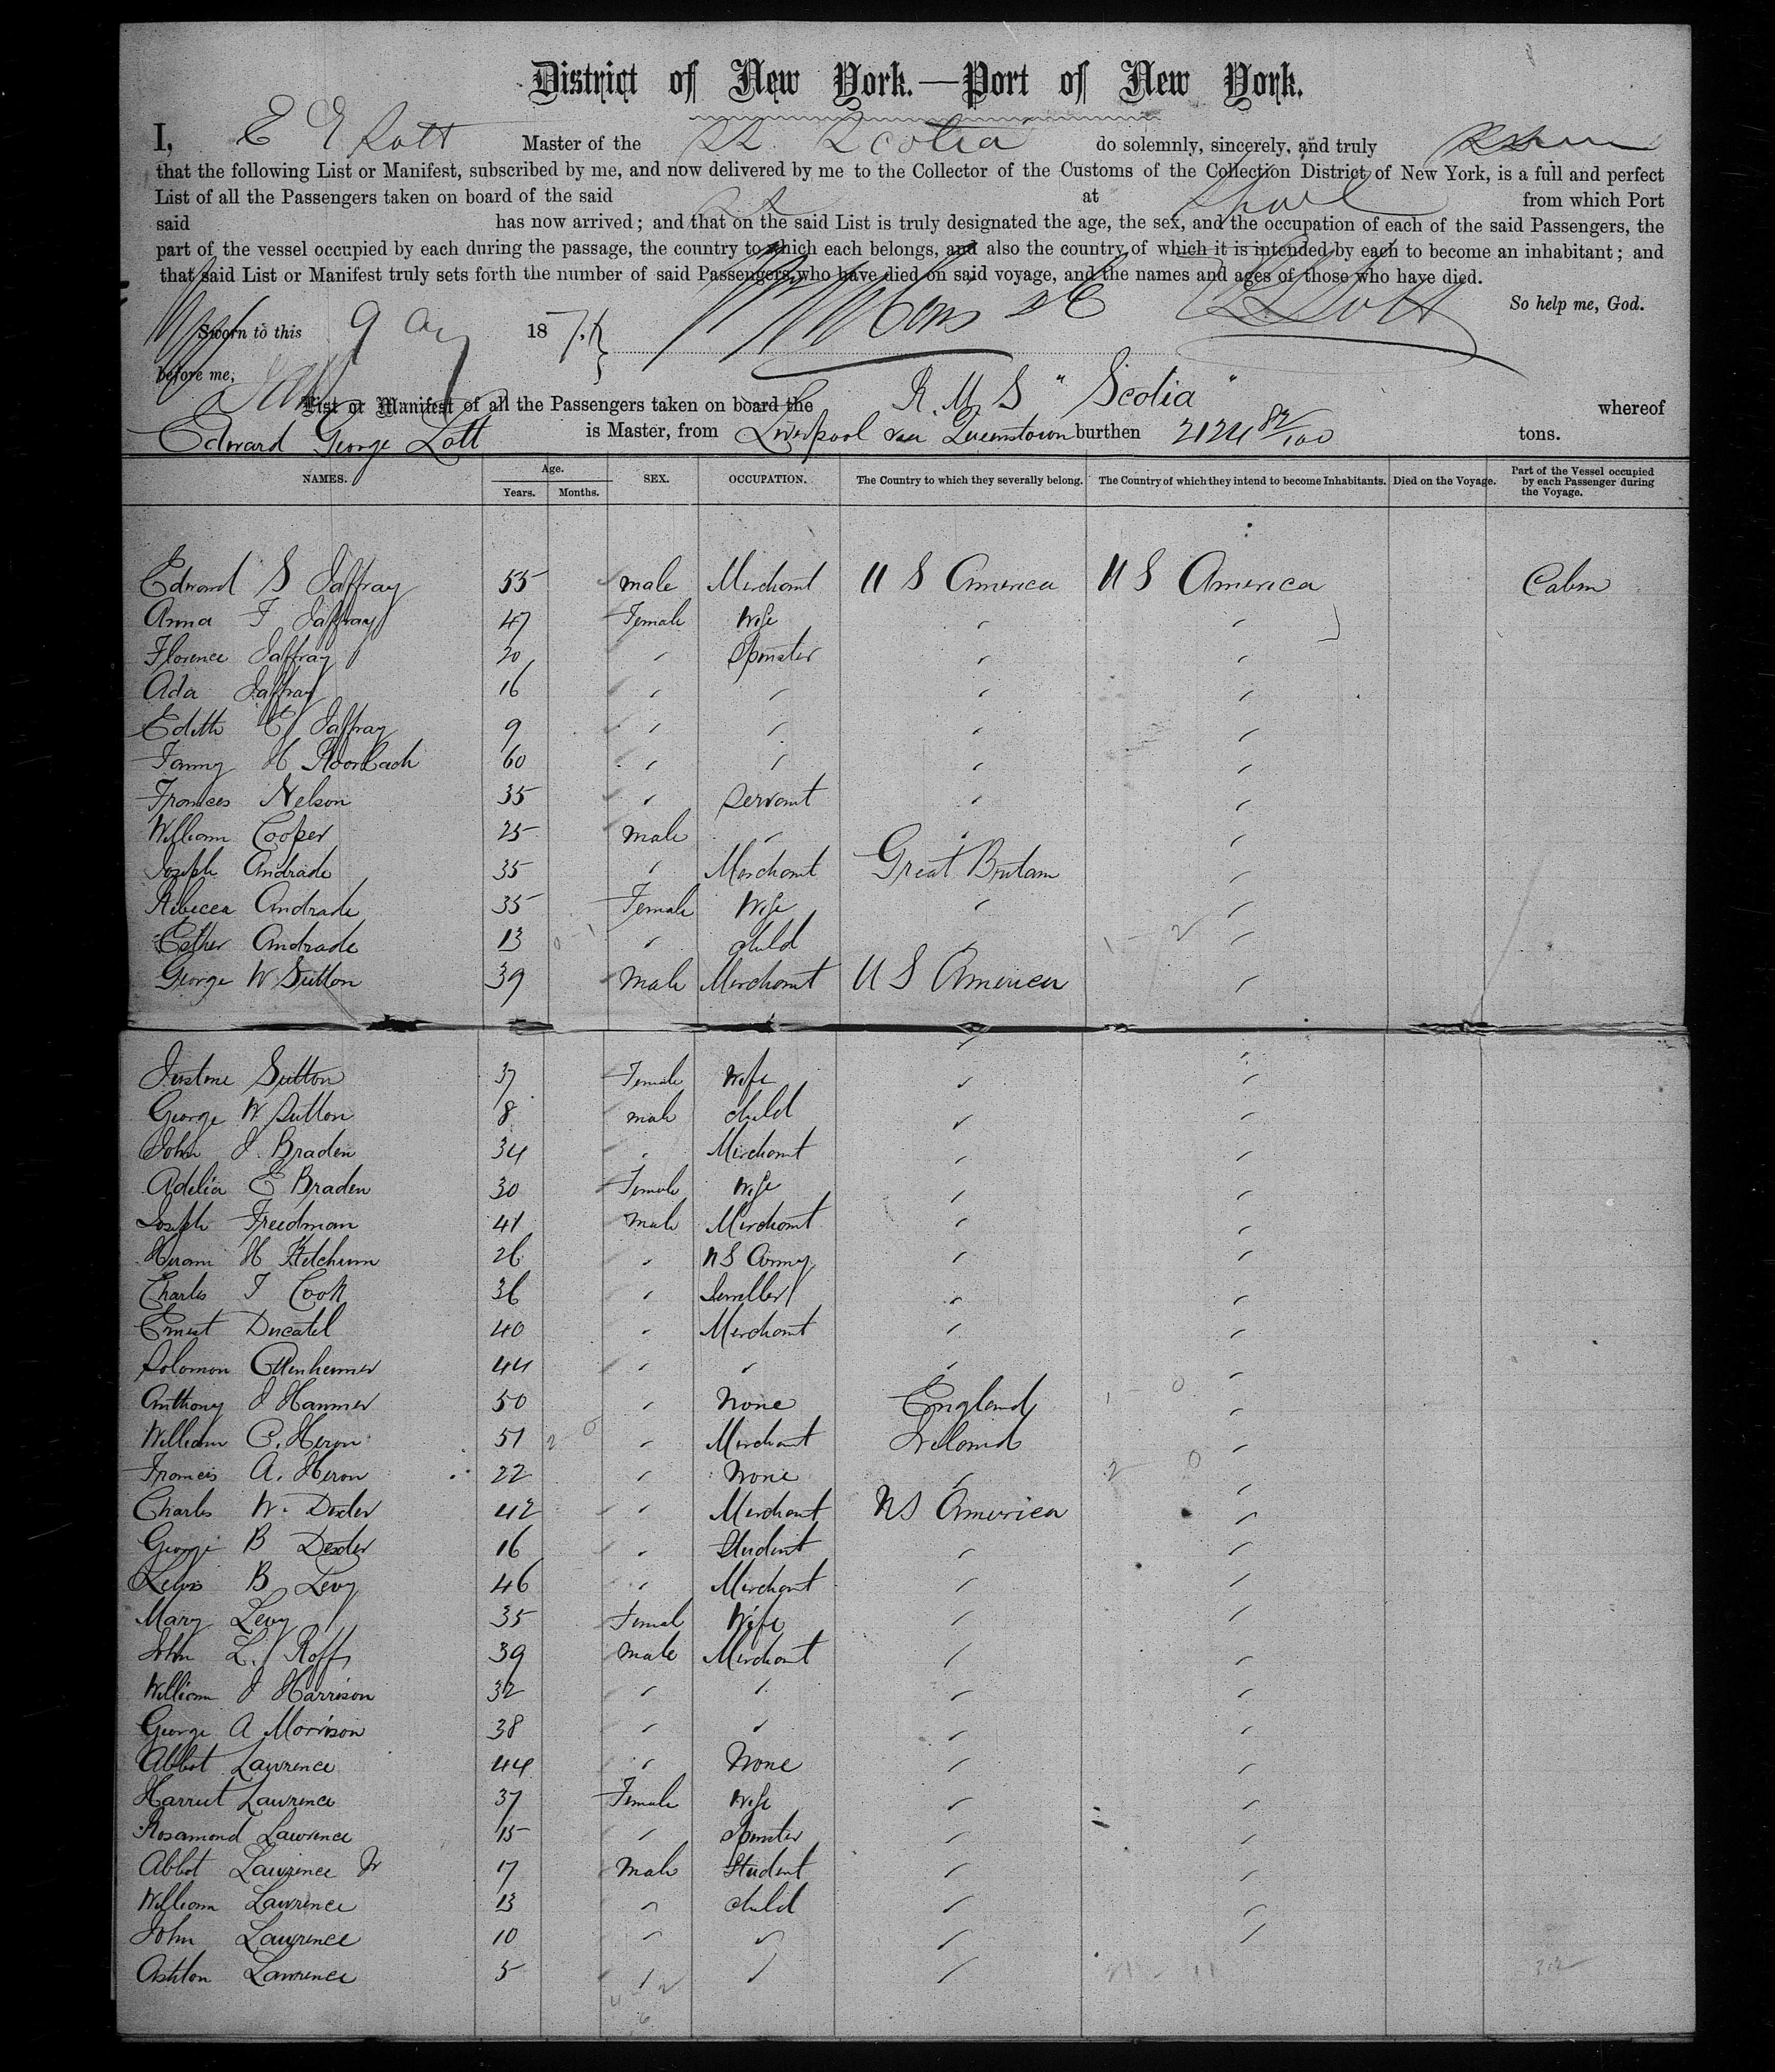 District of New York.—Port of New York.
I, E G Lott Master of the SS. Scotia do solemnly, sincerely, and truly swear
that the following List or Manifest, subscribed by me, and now delivered by me to the Collector of the Customs of the Collection District of New York, is a full and perfect
List of all the Passengers taken on board of the said at Lpool from which Port
said SS has now arrived; and that on the said List is truly designated the age, the sex, and the occupation of each of the said Passengers, the
part of the vessel occupied by each during the passage, the country to which each belongs, and also the country of which it is intended by each to become an inhabitant; and
that said List or Manifest truly sets forth the number of said Passengers who have died on said voyage, and the names and ages of those who have died.
So help me, God.
Sworn to this 9 187 Lott
before me,
List or Manifest of all the Passengers taken on board the R. M. S "Scotia" whereof
Edward George Lott is Master, from Liverpool via Queenstown burthen 2124 82/100 tons.
NAMES. Age. Years. Months. SEX. OCCUPATION. The Country to which they severally belong. The Country of which they intend to become Inhabitants. Died on the Voyage. Part of the Vessel occupied by each Passenger during the Voyage.
Edward S Jaffray 55 male Merchant U S America U S America Cabin
Anna F Jaffray 47 Female Wife " "
Florence Jaffray 20 " Spinster " "
Ada Jaffray 16 " " " "
Edith E Jaffray 9 " " " "
Fanny H Roorbach 60 " " " "
Frances Nelson 35 " Servant " "
William Cooper 25 male " " "
Joseph Andrade 35 " Merchant Great Britain "
Rebecca Andrade 35 Female Wife " "
Esther Andrade 13 " child " "
George W Sutton 39 Male Merchant U S America "
Justine Sutton 37 Female Wife " "
George W Sutton 8 male child " "
John J. Braden 34 " Merchant " "
Adelia E Braden 30 Female Wife " "
Joseph Freedman 41 Male Merchant " "
Hiram H Ketchum 26 " U S Army " "
Charles T Cook 36 " Jeweller " "
Ernest Ducatel 40 " Merchant " "
Solomon Ottenheimer 44 " " " "
Anthony J Hanmer 50 " None England "
William C. Heron 51 " Merchant Ireland "
Francis A. Heron 22 " None " "
Charles W. Dexter 42 " Merchant U S America "
George B Dexter 16 " Student " "
Lewis B Levy 46 " Merchant " "
Mary Levy 35 Femal Wife " "
John L. Roff 39 Male Merchant " "
William J Harrison 32 " " " "
George A Morrison 38 " " " "
Abbot Lawrence 44 " None " "
Harriet Lawrence 37 Female Wife " "
Rosamond Lawrence 15 " Spinster " "
Abbot Lawrence Jr 17 Male Student " "
William Lawrence 13 " child " "
John Lawrence 10 " " " "
Ashton Lawrence 5 " " "